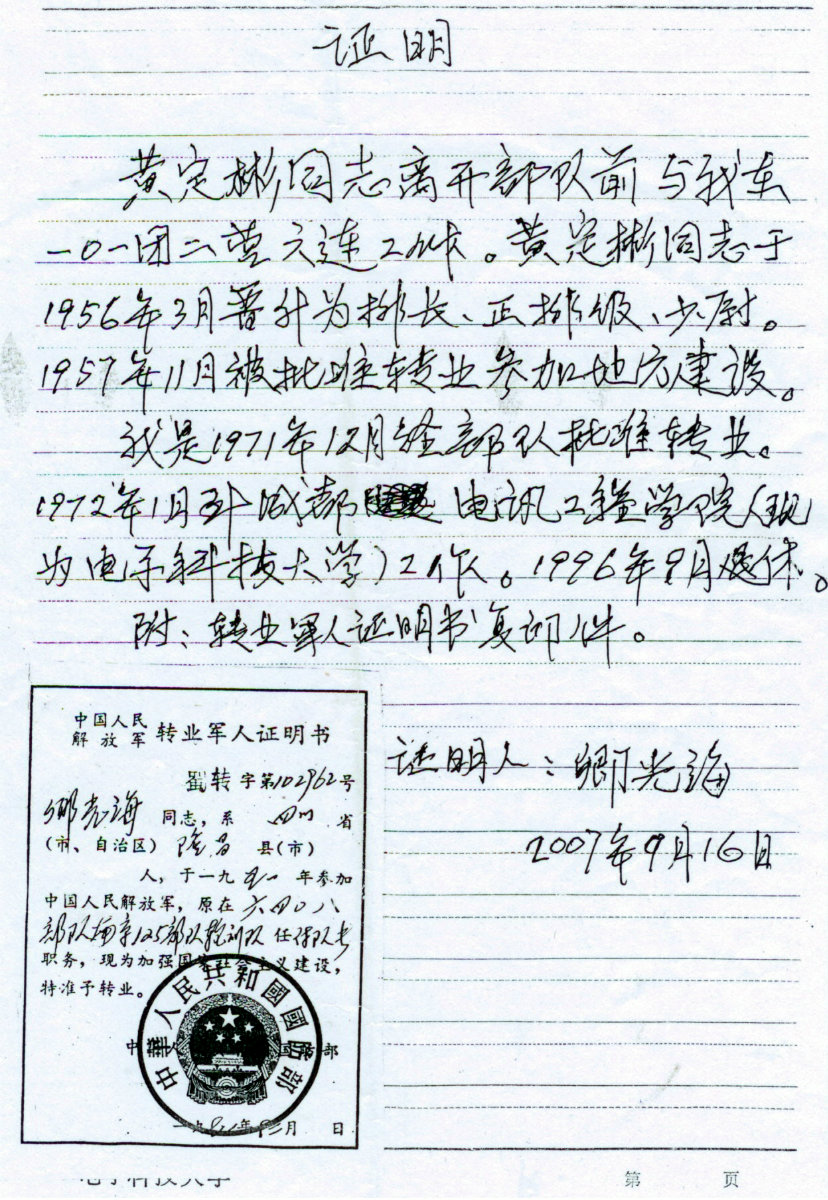 证明
黄定彬同志离开部队前与我在
一0一团二营六连工作。黄定彬同志于
1956年3月晋升为排长、正排级、少尉。
1957年11月被批准转业参加地方建设。
我是1971年12月经部队批准转业。
1972年1月到成都电讯工程学院(现
为电子科技大学)工作。1996年9月退休。
附:转业军人证明书复印件。
证明人:卿光海
2007年9月16日
中国人民
解放军 转业军人证明书
蜀转字第102962号
卿光海 同志,系 四川 省
(市、自治区) 隆昌 县(市)
人,于一九五一年参加
中国人民解放军,原在六四0八
部队 125部队 任 队长
职务,现为加强国家社会主义建设,
特准予转业。
中 国防部
中華人民共和國國防部
一九七一年十二月 日
电子科技大学
第 页